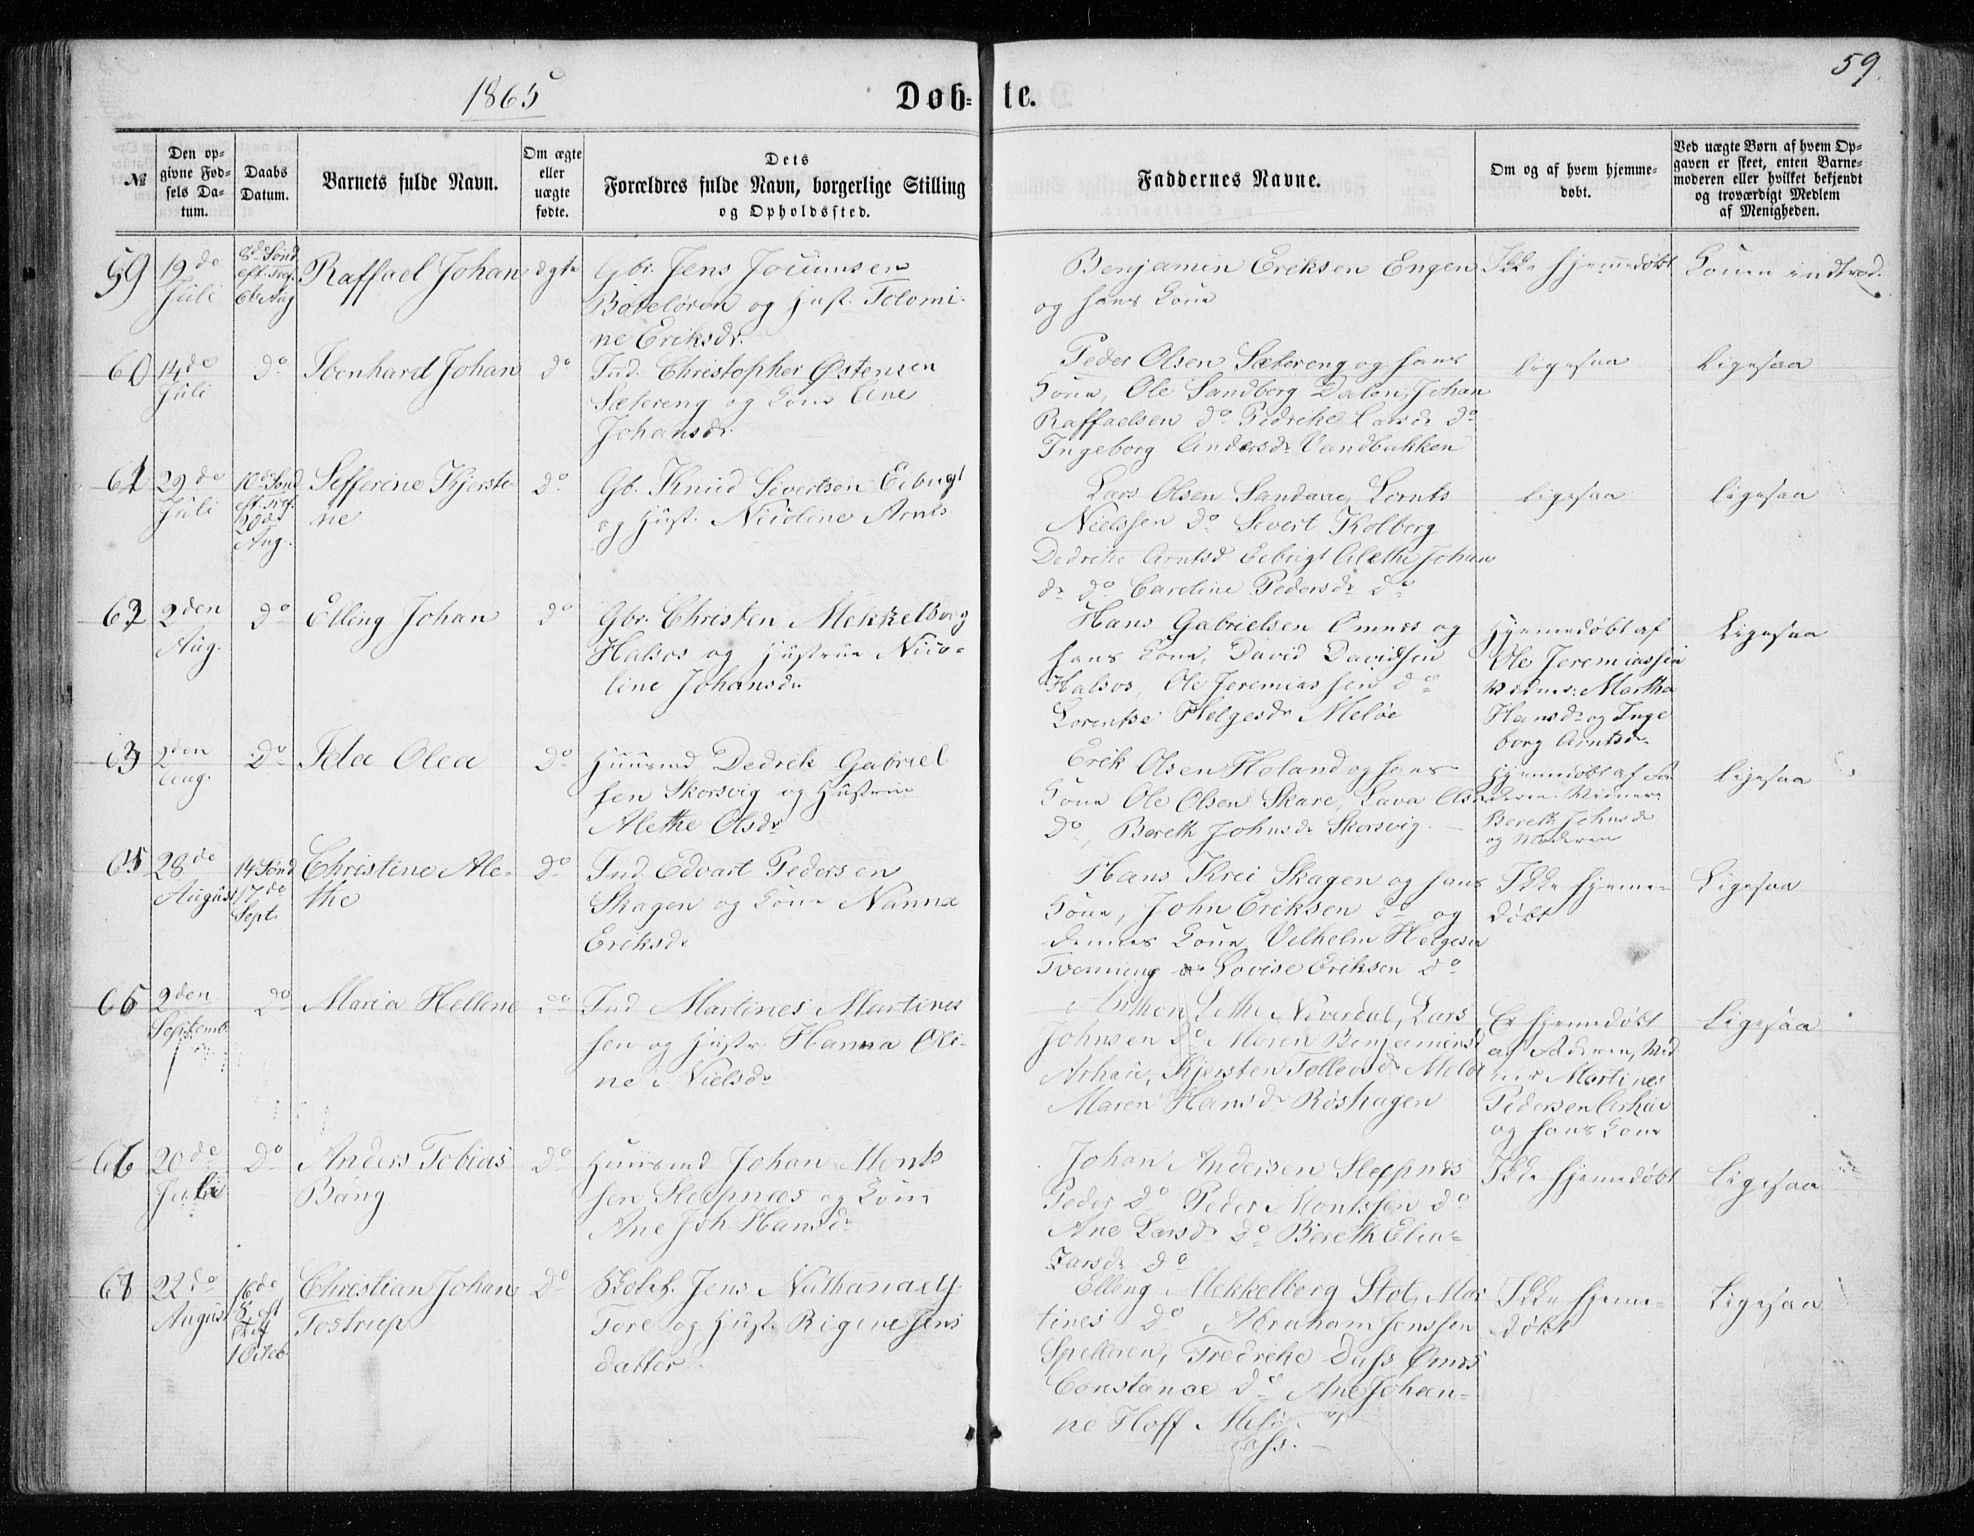 1865
Døb=te.
59.
№
Den op=
givne Fød=
sels Da=
tum.
Daabs
Datum.
Barnets fulde Navn.
Om ægte
eller
uægte
fødte.
Dets
Forældres fulde Navn, borgerlige Stilling
og Opholdssted.
Faddernes Navne.
Om og af hvem hjemme=
døbt.
Ved uægte Børn af hvem Op=
gaven er skeet, enten Barne=
moderen eller hvilket bekjendt
og troværdigt Medlem
af Menigheden.
59
19de
Juli
8de Sønd
eft. Tref.
6te Aug
Raffael Johan
ægte
Gbr. Jens
og Hust. Tolomi-
ne Eriksdr.
Benjamin Eriksen Engen
og hans Kone
Ikke hjemmedøbt
Konen indtræd.
60
14de
Juli
do
Johan
do
Ind. Christopher Østensen
Sætereng og Kone Ane
Johansdr.
Peder Olsen Sætereng og hans
Kone, Ole Sandberg Dalen, Johan
Raffaelsen do Pedrikke Larsdr do
Ingeborg Andersdr Vandbakken
ligesaa
Ligesaa
61
29de
Juli
10de Sønd
eft. Tref.
20de
Aug.
Sefferine Kjersti-
ne
do
Gb. Knud Sivertsen
og Hust. Nicoline Arnts
Lars Olsen Sandaae, Lornts
Nielssen do Sivert Kolberg
Dedrikke Arntsd Alethe Johan
dr do Caroline Pedersdr do
ligesaa
ligesaa
62
2den
Aug.
do
Elling Johan
do
Gbr. Christen Mekkelborg
Halsos og Hustrue Nico-
line Johansdr.
Hans Gabrielsen Ornes og
hans Kone, David Davidsen
Halsos, Ole Jeremiassen do
Lorentse Helgesdr Meløe
Hjemmedøbt af
Ole Jeremiassen
Vidner: Martha
Hansdr og Inge
borg Arntsdr.
Ligesaa
63
2den
Aug.
do
Ida Olea
do
Huusmd Dedrik Gabriel
sen Skorsvig og Hustrue
Alethe Olsdr
Erik Olsen Holand og hans
Kone Ole Olsen Skare, Lava Olsdr
do, Bereth Johnsdr Skorsvig.
Hjemmedøbt af Fa
deren. Vidner:
Bereth Johnsdr
og Moderen
Ligesaa
65
28de
August
14 Sønd
17de
Sept.
Christine Ale-
the
do
Ind. Edvart Pedersen
Skagen og Kone Nanna
Eriksdr
Hans Krei Skagen og hans
Kone, John Eriksen do og
dennes Kone, Vilhelm Helgesen
Tvenning Lovise Eriksen do
Ikke hjemme-
døbt
Ligesaa
65
2den
Septemb
do
Maria Hellene
do
Ind Martines Martines
sen og Hustr Hanna Oli-
ne Nielsdr
Anthon Lethe Neverdal, Lars
Johnsen do Maren Benjaminsd
Kjersten Tollevsdr Meløe
Maren Hansdr Røshagen
Er hjemmedøbt
af Faderen, Vid
ner Martines
Pedersen
og hans Kone
Ligesaa
66
20de
Juli
do
Anders Tobias
Bang
do
Huusmd Johan Monts
sen Sleipnæs og Kone
Ane Joh. Hansdr
Johan Andersen Sleipnæs
Peder do Peder Montssen do
Ane Larsdr do Bereth Elen-
Larsdr do
Ikke hjemmedøbt
Ligesaa
67
22de
August
16de
S. eft
Tref
1 Octob.
Christian Johan
Tostrup
do
Skolel. Jens Nathanaels
Fore og Hust. Regine Jens
datter
Elling Mekkelborg Stot, Mar
tines do Abraham Jenssen
Fredrikke Dass Ørnes
Constance do Ane Johan-
ne Hoff Meløe
Ikke hjemme-
døbt
Ligesaa